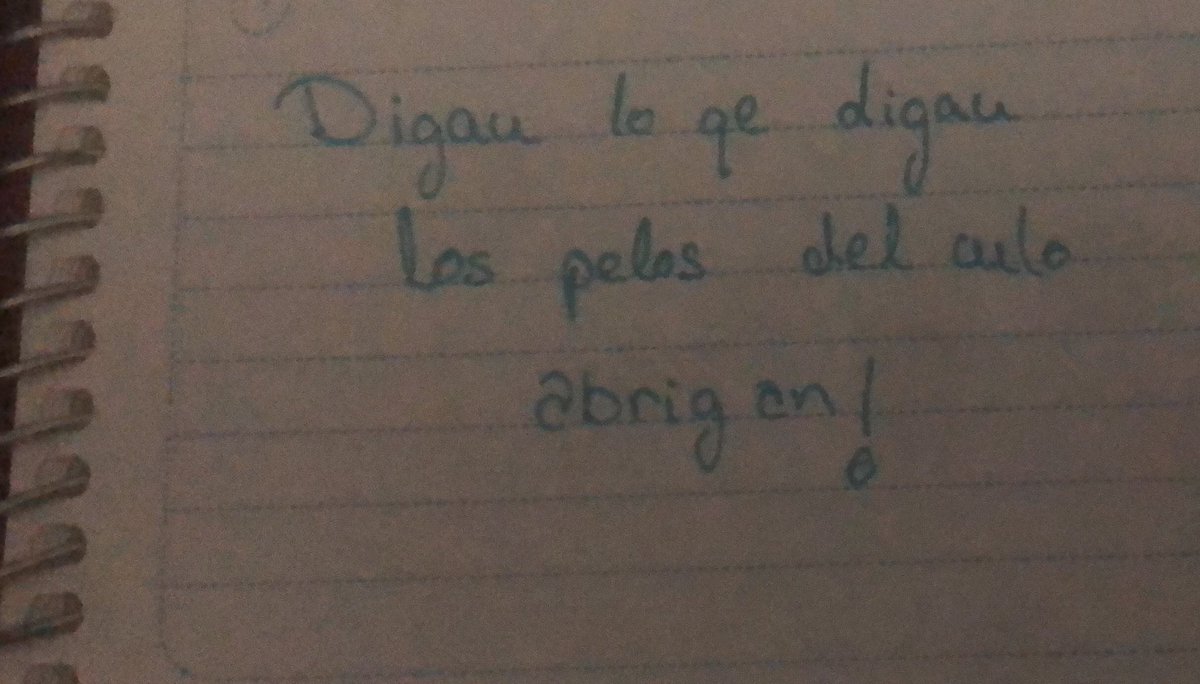 Digan lo qe digan
los pelos del culo
abrigan!